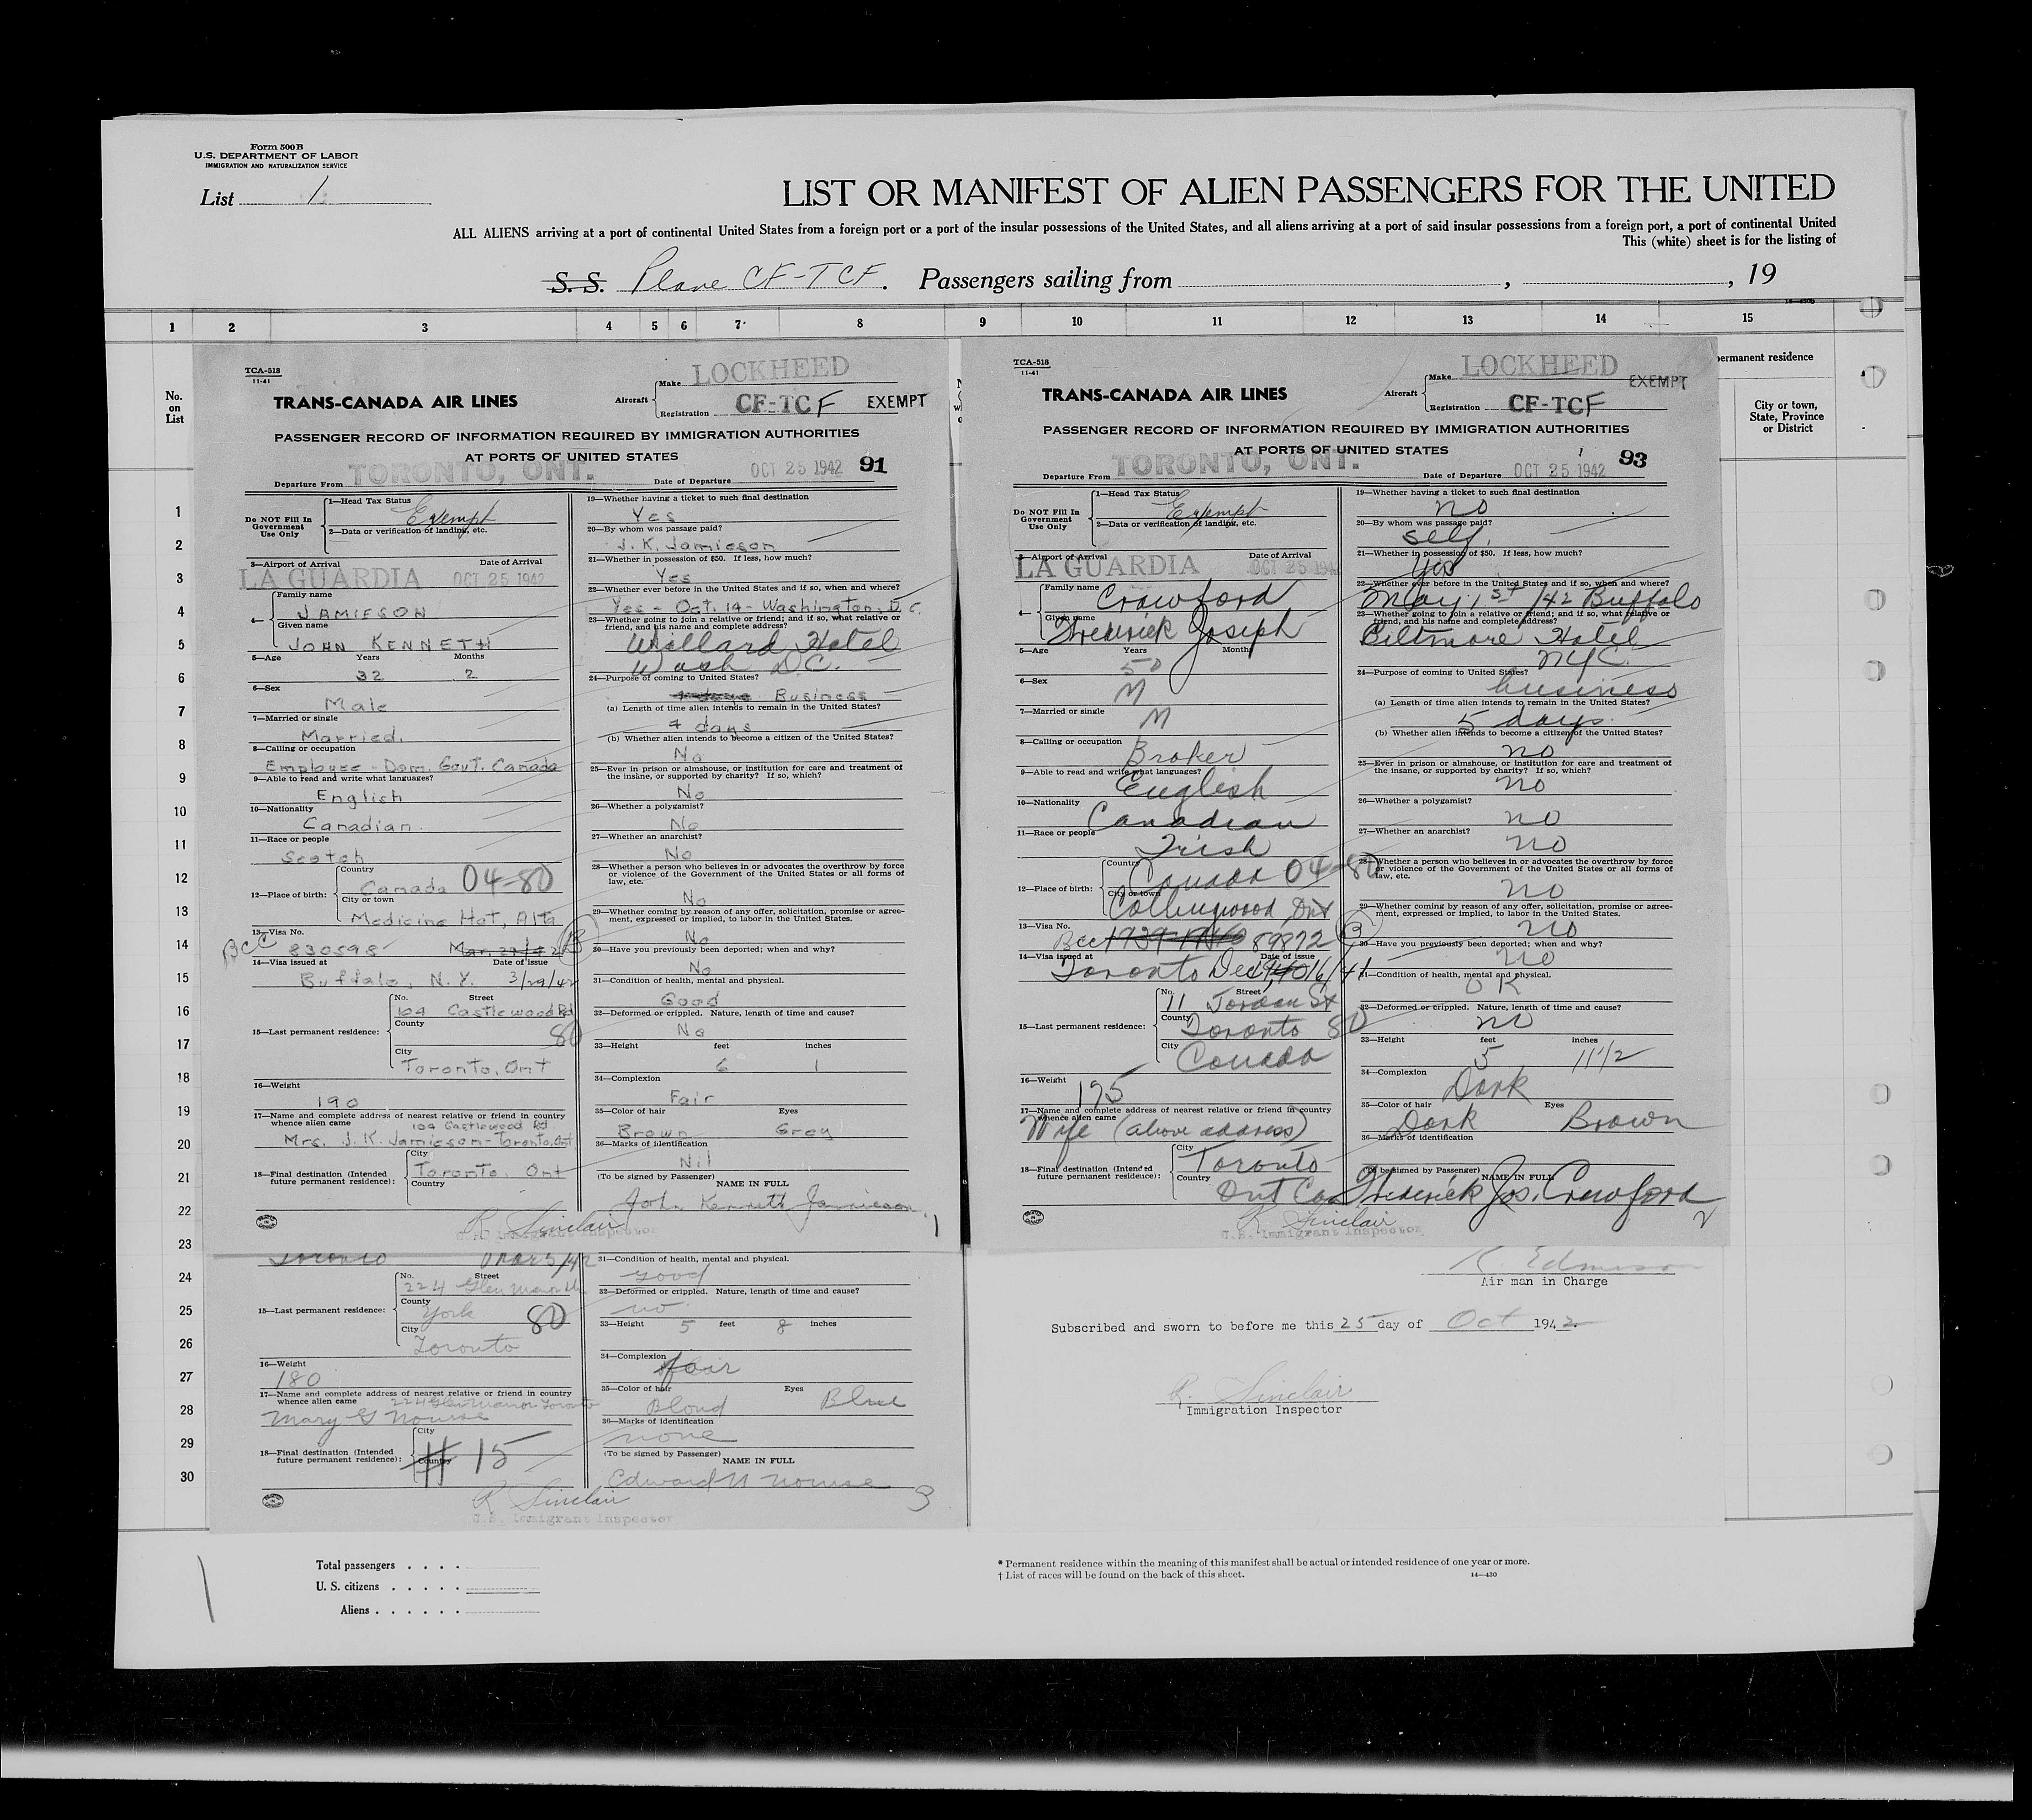 Form 500 B
U.S. DEPARTMENT OF LABOR
IMMIGRATION AND NATURALIZATION SERVICE
List 1
LIST OR MANIFEST OF ALIEN PASSENGERS FOR THE UNITED
ALL ALIENS arriving at a port of continental United States from a foreign port or a port of the insular possessions of the United States, and all aliens arriving at a port of said insular possessions from a foreign port, a port of continental United
This (white) sheet is for the listing of
S. S. Plane CF-TCF. Passengers sailing from , , 19
1 2 3 4 5 6 7 8 9 10 11 12 13 14 15
No. on List
permanent residence
City or town, State, Province or District
1
2
3
4
5
6
7
8
9
10
11
12
13
14
15
16
17
18
19
20
21
22
23
24
25
26
27
28
29
30
TCA-518
11-41
TRANS-CANADA AIR LINES
Aircraft
Make LOCKHEED
Registration CF-TCF EXEMPT
PASSENGER RECORD OF INFORMATION REQUIRED BY IMMIGRATION AUTHORITIES
AT PORTS OF UNITED STATES
Departure From TORONTO, ONT. Date of Departure OCT 25 1942 91
Do NOT Fill In Government Use Only
1—Head Tax Status
Exempt
2—Data or verification of landing, etc.
3—Airport of Arrival Date of Arrival
LA GUARDIA OCT 25 1942
4— Family name
JAMIESON
Given name
JOHN KENNETH
5—Age Years Months
32 2
6—Sex
Male
7—Married or single
Married.
8—Calling or occupation
Employee - Dom. Govt. Canada
9—Able to read and write what languages?
English
10—Nationality
Canadian.
11—Race or people
Scotch
12—Place of birth: Country
Canada 04-80
City or town
Medicine Hat, Alta
13—Visa No.
BCC 830598 Mar. 29/42 B
14—Visa issued at Date of issue
Buffalo, N.Y. 3/29/42
15—Last permanent residence: No. Street
104 Castlewood Rd
County
80
City
Toronto, Ont
16—Weight
190
17—Name and complete address of nearest relative or friend in country whence alien came
104 Castlewood Rd
Mrs. J. K. Jamieson - Toronto, Ont
18—Final destination (Intended future permanent residence): City
Toronto, Ont
Country
19—Whether having a ticket to such final destination
Yes
20—By whom was passage paid?
J. K. Jamieson
21—Whether in possession of $50. If less, how much?
Yes
22—Whether ever before in the United States and if so, when and where?
Yes - Oct. 14 - Washington, D.C.
23—Whether going to join a relative or friend; and if so, what relative or friend, and his name and complete address?
Willard Hotel
Wash D.C.
24—Purpose of coming to United States?
Business
(a) Length of time alien intends to remain in the United States?
4 days
(b) Whether alien intends to become a citizen of the United States?
No
25—Ever in prison or almshouse, or institution for care and treatment of the insane, or supported by charity? If so, which?
No
26—Whether a polygamist?
No
27—Whether an anarchist?
No
28—Whether a person who believes in or advocates the overthrow by force or violence of the Government of the United States or all forms of law, etc.
No
29—Whether coming by reason of any offer, solicitation, promise or agreement, expressed or implied, to labor in the United States.
No
30—Have you previously been deported; when and why?
No
31—Condition of health, mental and physical.
Good
32—Deformed or crippled. Nature, length of time and cause?
No
33—Height feet inches
6 1
34—Complexion
Fair
35—Color of hair Eyes
Brown Grey
36—Marks of identification
Nil
(To be signed by Passenger) NAME IN FULL
John Kenneth Jamieson 1
R. Sinclair
U.S. Immigrant Inspector
TCA-518
11-41
TRANS-CANADA AIR LINES
Aircraft
Make LOCKHEED
Registration CF-TCF EXEMPT
PASSENGER RECORD OF INFORMATION REQUIRED BY IMMIGRATION AUTHORITIES
AT PORTS OF UNITED STATES
Departure From TORONTO, ONT. Date of Departure OCT 25 1942 93
Do NOT Fill In Government Use Only
1—Head Tax Status
Exempt
2—Data or verification of landing, etc.
3—Airport of Arrival Date of Arrival
LA GUARDIA OCT 25 194
4— Family name
Crawford
Given name
Frederick Joseph
5—Age Years Months
50
6—Sex
M
7—Married or single
M
8—Calling or occupation
Broker
9—Able to read and write what languages?
English
10—Nationality
Canadian
11—Race or people
Irish
12—Place of birth: Country
Canada 04-80
City or town
Collingwood, Ont
13—Visa No.
Bcc 89872 B
14—Visa issued at Date of issue
Toronto Dec 16/41
15—Last permanent residence: No. Street
11 Jordan St
County
Toronto 80
City
Canada
16—Weight
195
17—Name and complete address of nearest relative or friend in country whence alien came
Wife (above address)
18—Final destination (Intended future permanent residence): City
Toronto
Country
Ont Can
19—Whether having a ticket to such final destination
no
20—By whom was passage paid?
self.
21—Whether in possession of $50. If less, how much?
Yes
22—Whether ever before in the United States and if so, when and where?
May 1st/42 Buffalo
23—Whether going to join a relative or friend; and if so, what relative or friend, and his name and complete address?
Biltmore Hotel
NYC.
24—Purpose of coming to United States?
business
(a) Length of time alien intends to remain in the United States?
5 days.
(b) Whether alien intends to become a citizen of the United States?
no
25—Ever in prison or almshouse, or institution for care and treatment of the insane, or supported by charity? If so, which?
no
26—Whether a polygamist?
no
27—Whether an anarchist?
no
28—Whether a person who believes in or advocates the overthrow by force or violence of the Government of the United States or all forms of law, etc.
no
29—Whether coming by reason of any offer, solicitation, promise or agreement, expressed or implied, to labor in the United States.
no
30—Have you previously been deported; when and why?
no
31—Condition of health, mental and physical.
OK
32—Deformed or crippled. Nature, length of time and cause?
no
33—Height feet inches
5 11 1/2
34—Complexion
Dark
35—Color of hair Eyes
Dark Brown
36—Marks of identification
(To be signed by Passenger) NAME IN FULL
Frederick Jos. Crawford 2
R. Sinclair
U.S. Immigrant Inspector
Toronto Mar 5/42
15—Last permanent residence: No. Street
224 Glen Manor
County
York 80
City
Toronto
16—Weight
180
17—Name and complete address of nearest relative or friend in country whence alien came
224 Glen Manor Toronto
Mary G Nourse
18—Final destination (Intended future permanent residence): City
Country
# 15
31—Condition of health, mental and physical.
good
32—Deformed or crippled. Nature, length of time and cause?
no
33—Height 5 feet 8 inches
34—Complexion
fair
35—Color of hair Eyes
Blond Blue
36—Marks of identification
none
(To be signed by Passenger) NAME IN FULL
Edward N Nourse 3
R. Sinclair
U.S. Immigrant Inspector
Air man in Charge
Subscribed and sworn to before me this 25 day of Oct 1942
R. Sinclair
Immigration Inspector
Total passengers . . . .
U. S. citizens . . . . .
Aliens . . . . . .
* Permanent residence within the meaning of this manifest shall be actual or intended residence of one year or more.
† List of races will be found on the back of this sheet.
14—430